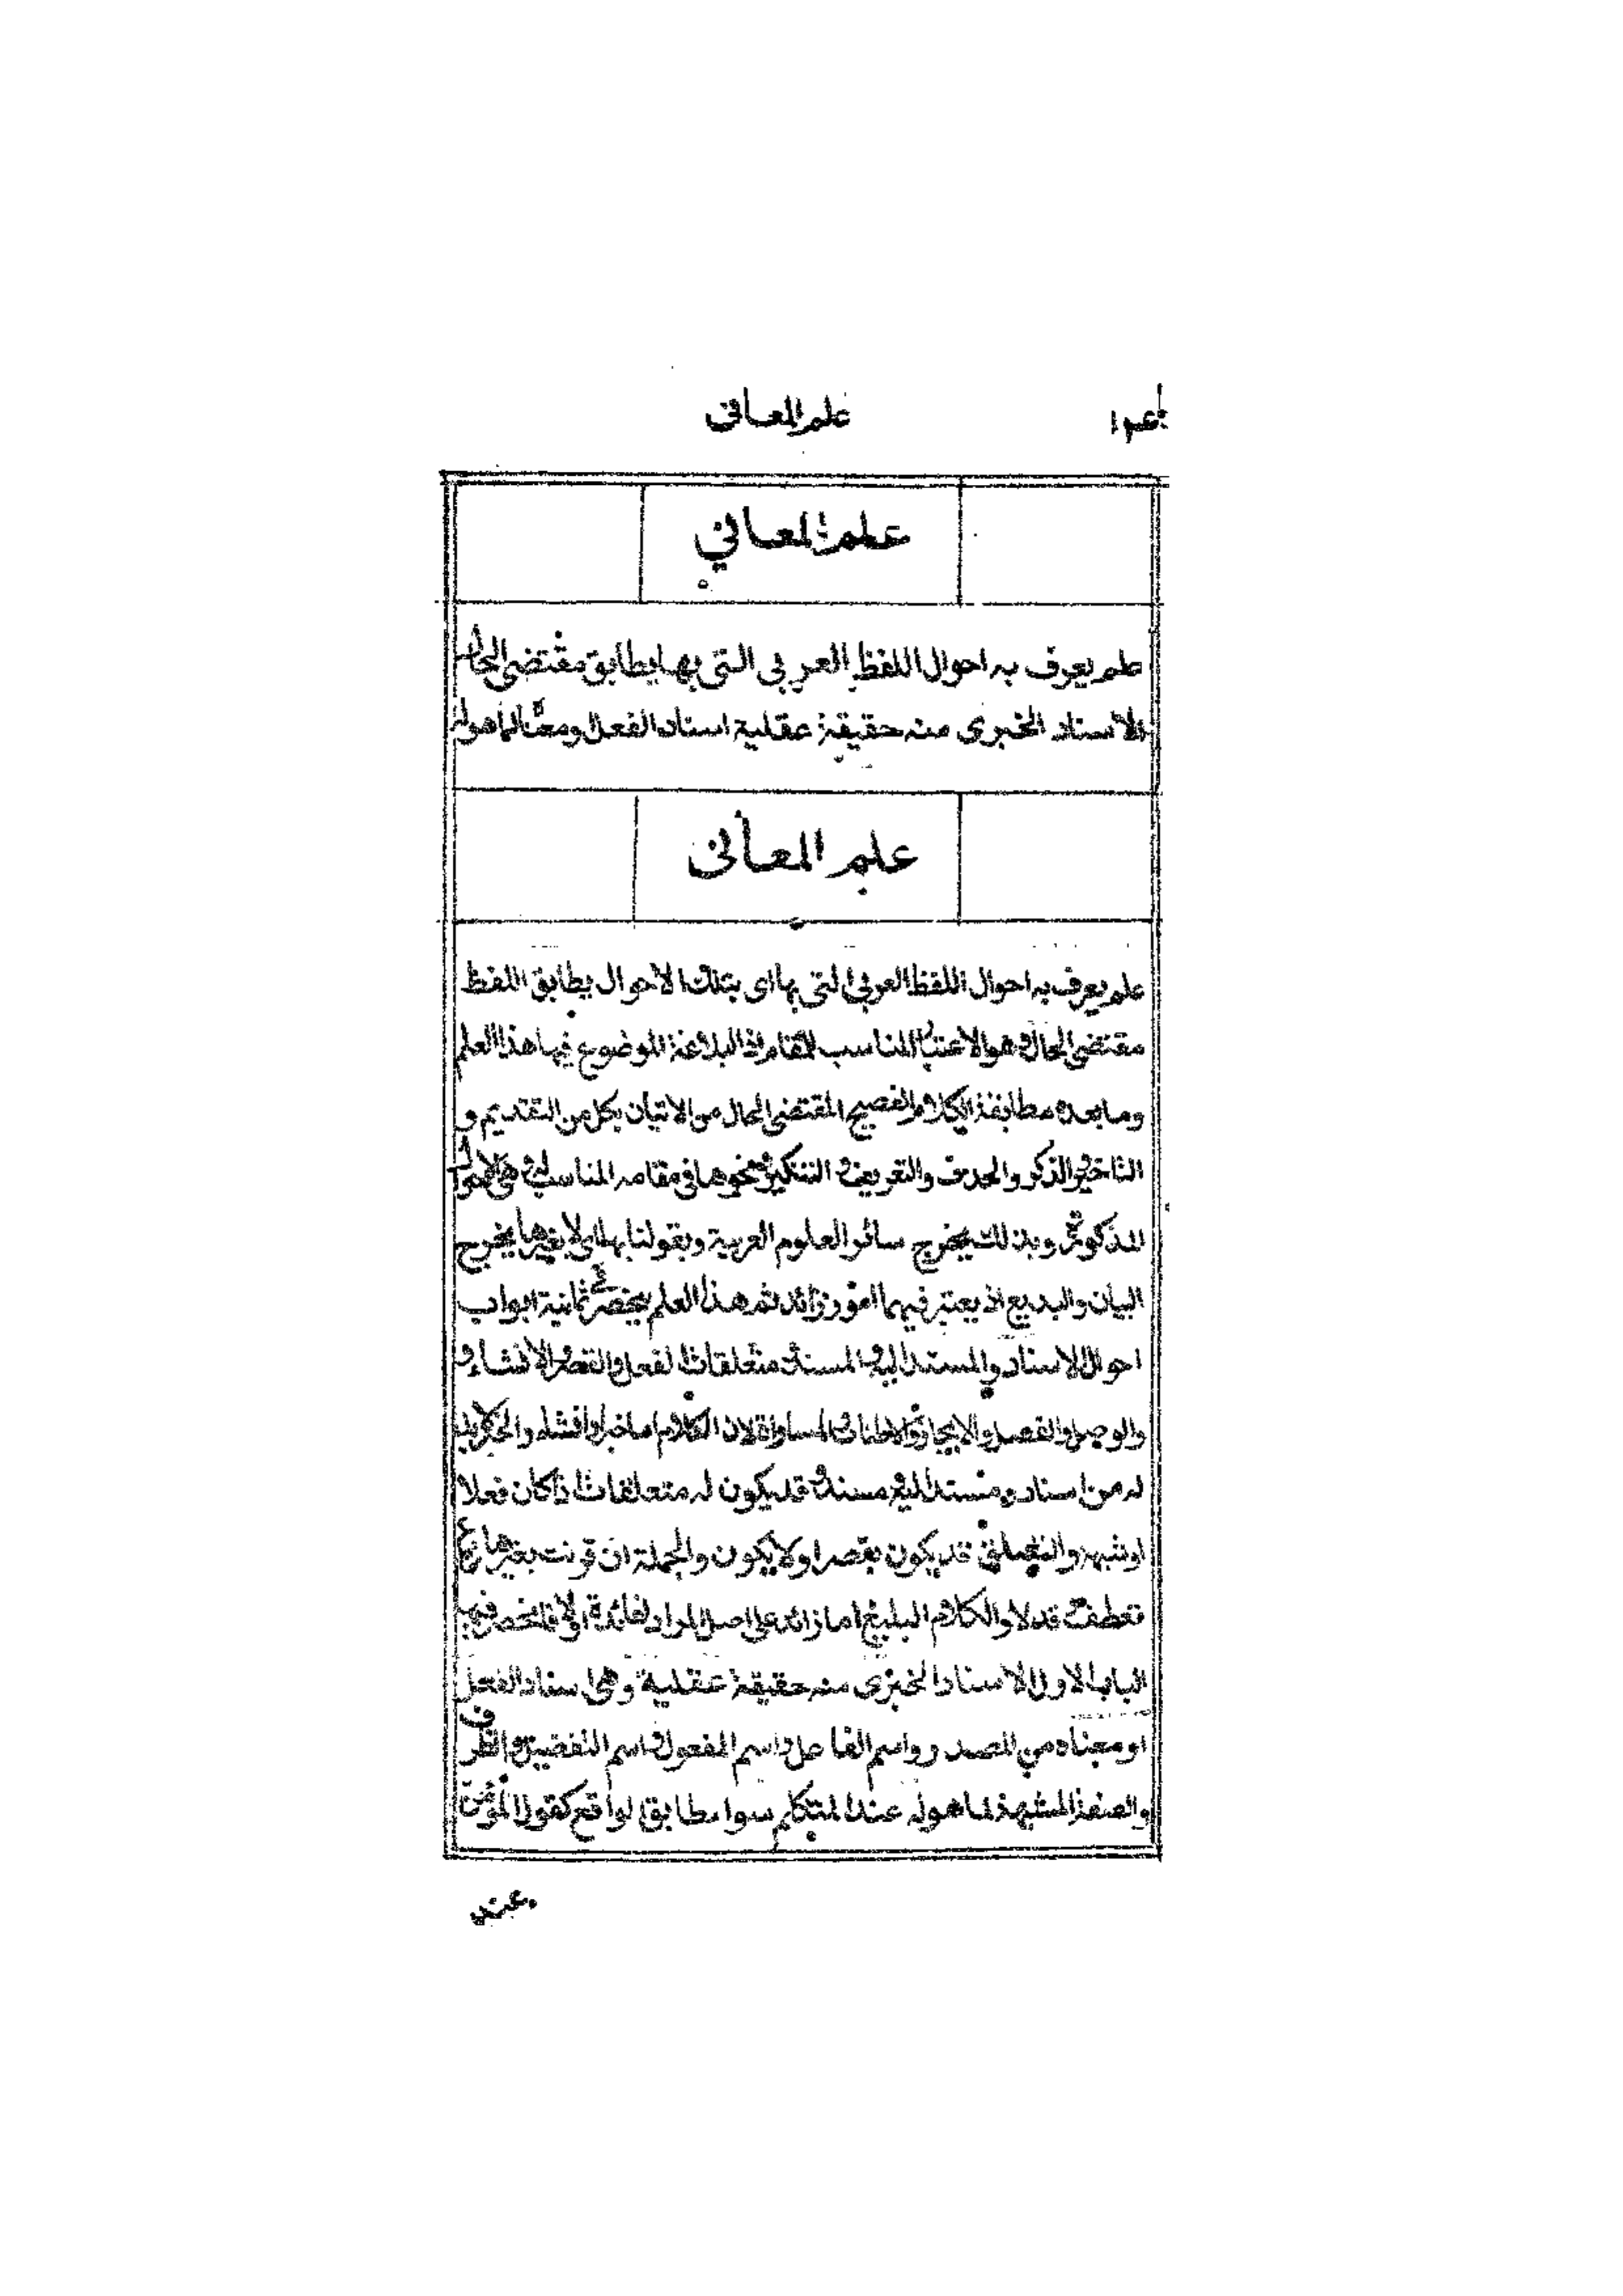 علم المعانى
علم المعاني
علم يعرف به احوال اللفظ العربى التى بها يطابق مقتضى الحال
الاسناد الخبرى منه حقيقة عقلية اسناد الفعل ومعناه لما هو له
علم المعانى
علم يعرف به احوال اللفظ العربى التى بها اى بتلك الاحوال يطابق اللفظ
مقتضى الحال وهو الاعتبار المناسب للمقام اذ البلاغة الموضوع فيها هذا العلم
وما بعده مطابقة الكلام الفصيح لمقتضى الحال من الاتيان بكل من التقديم و
التاخير والذكر والحذف والتعريف والتنكير ونحوها فى مقامه المناسب له وهى الاحوال
المذكورة وبذلك يخرج سائر العلوم العربية وبقولنا بها اى لا بغيرها يخرج
البيان والبديع اذ يعتبر فيهما امور زائد ثم هذا العلم ينحصر فى ثمانية ابواب
احوال الاسناد والمسند اليه والمسند ومتعلقات الفعل والقصر والانشاء و
والوصل والفصل والايجاز والاطناب والمساواة لان الكلام اما خبر او انشاء والخبر لابد
له من اسناد ومسند اليه ومسند وقد يكون له متعلقات اذا كان فعلا
او شبهه والتعلق قد يكون بقصر او لا يكون والجملة ان قرنت بغيرها
تعطف وقد لا والكلام البليغ اما زائد على اصل المراد لفائدة اولا فانحصر فيها
الباب الاول الاسناد الخبرى منه حقيقة عقلية وهى اسناد الفعل
او معناه من المصدر واسم الفاعل واسم المفعول واسم التفضيل والظرف
والصفة المشبهة لما هو له عند المتكلم سوا مطابق الواقع كقول المؤمن
عند